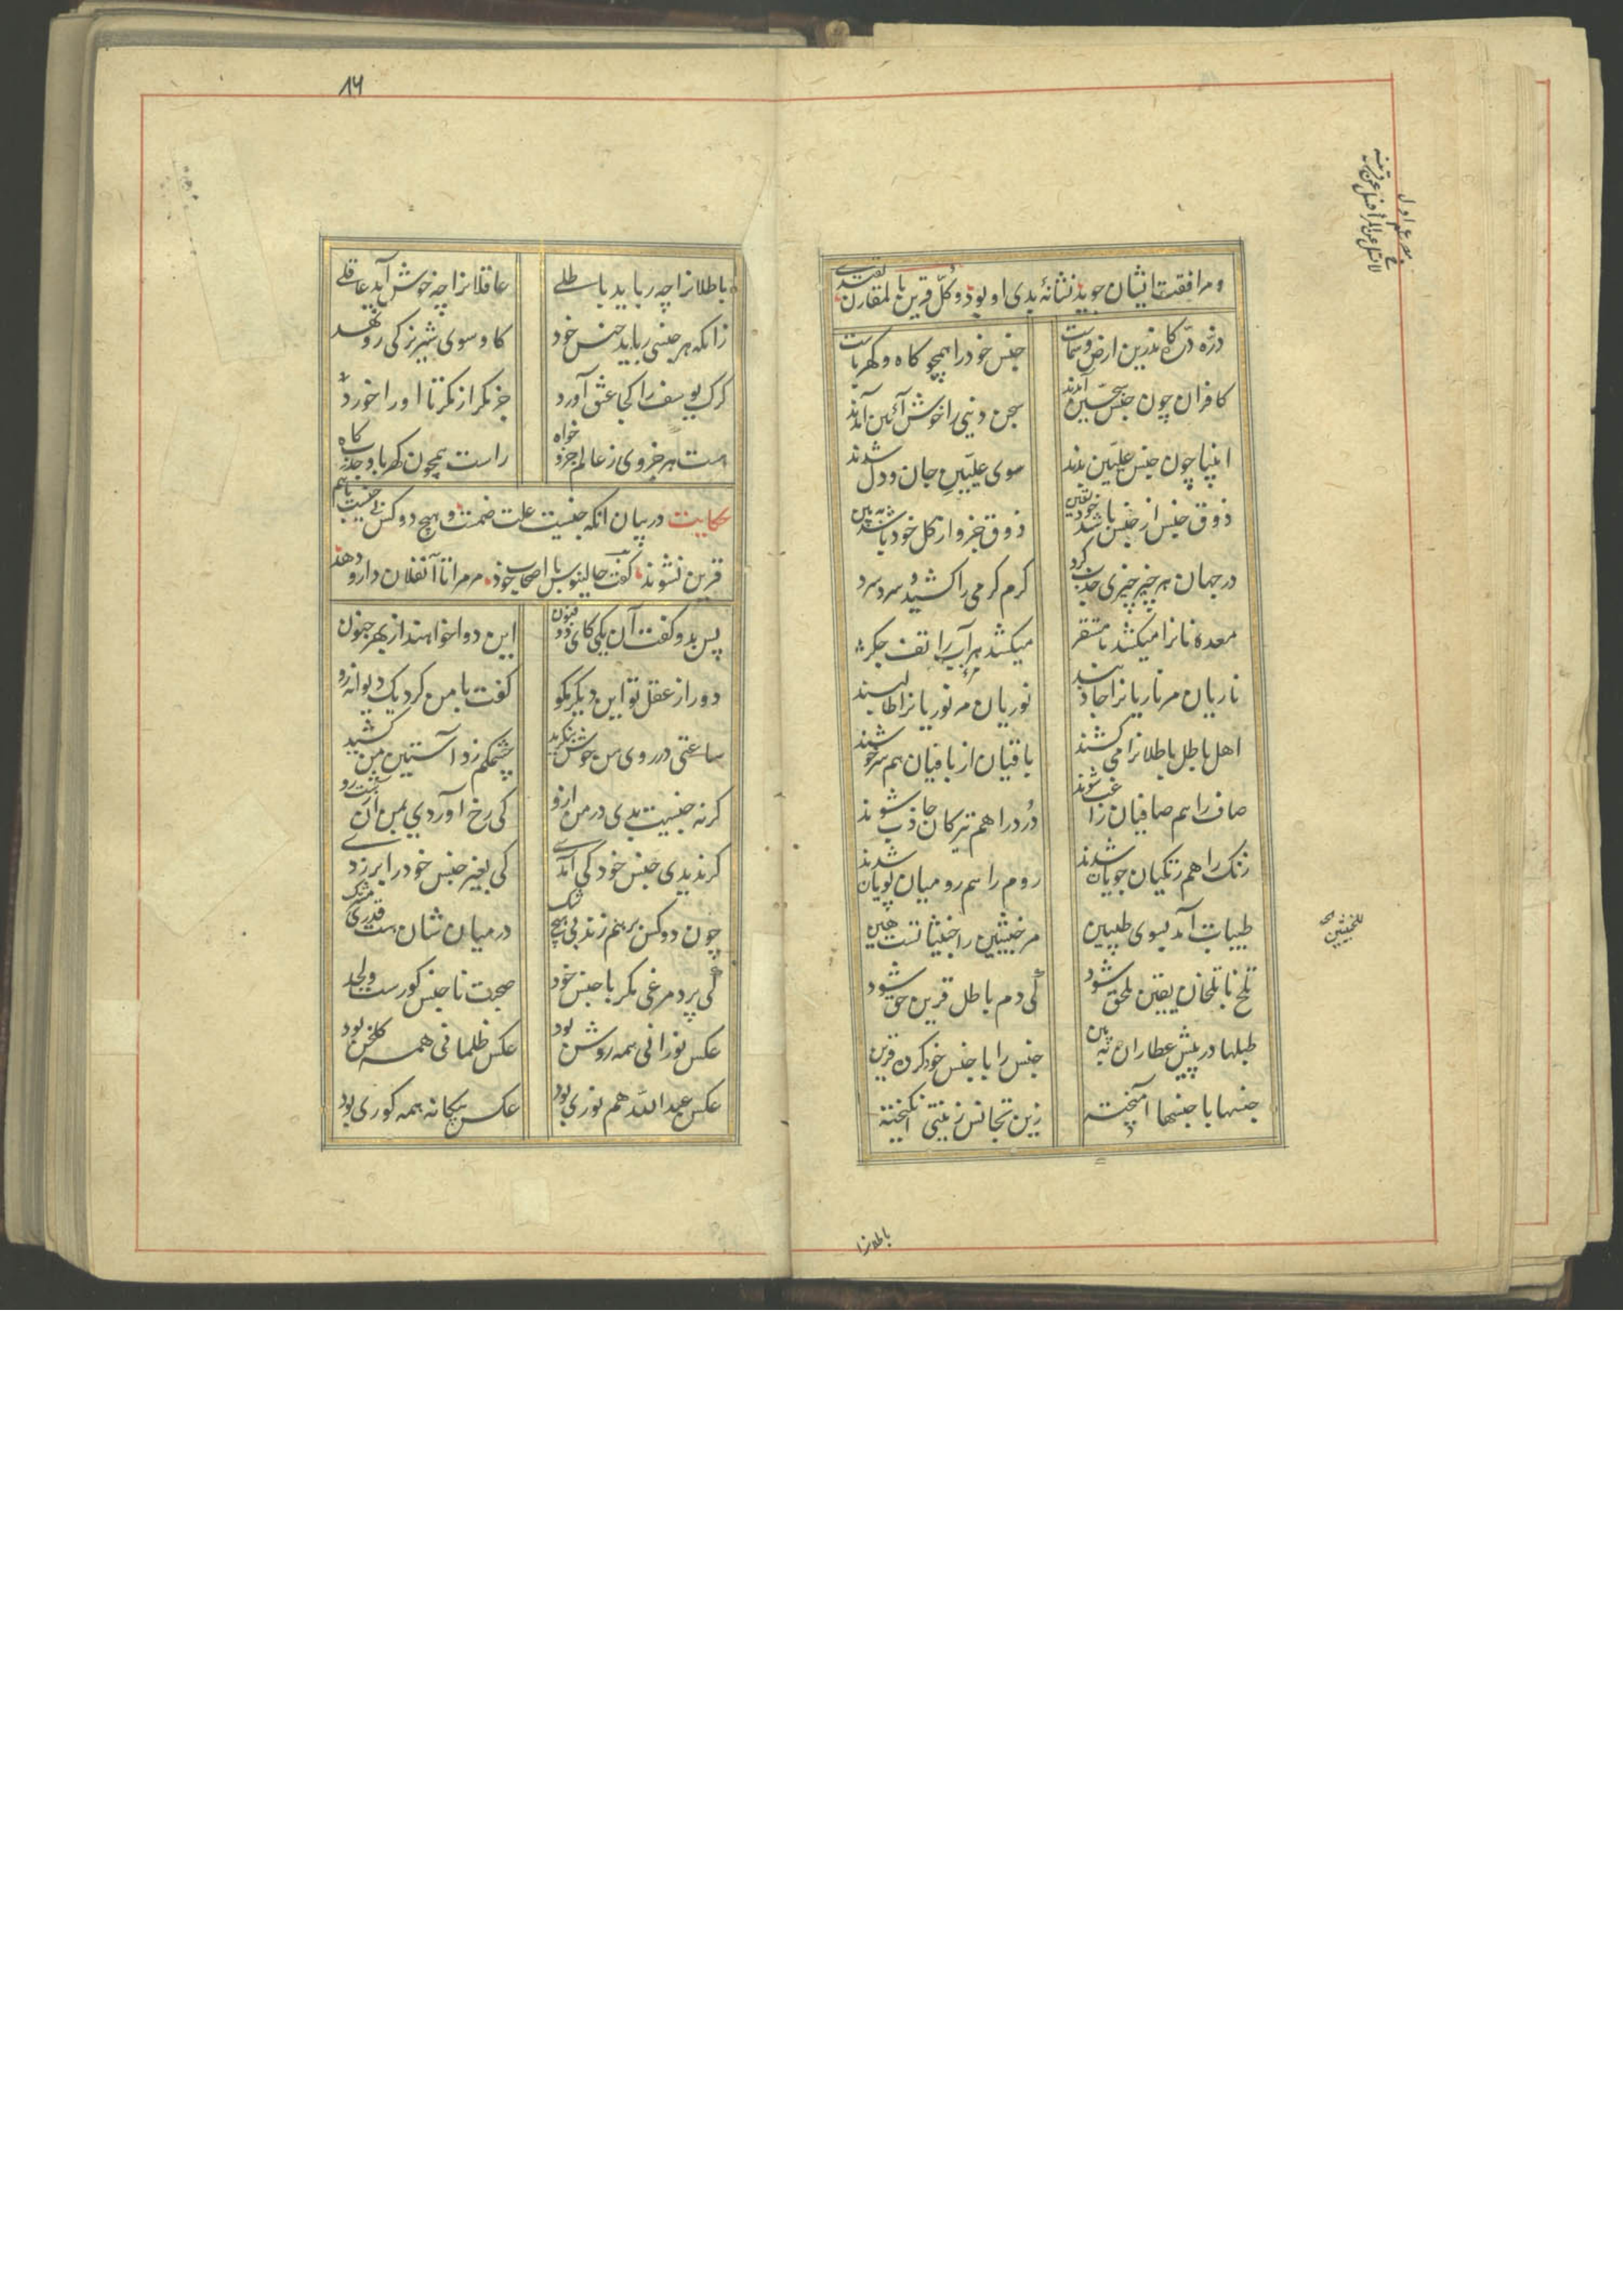 و مرافقت ایشان جوید نشانهٔ بدی او بود و کلّ قرین بالمقارن یقتدی
ذرّه ذرّه کاندرین ارض و سماست
جنس خود را همچو کاه و کهرباست
کافران چون جنس سجّین آمدند
سجن دنیی را خوش آئین آمدند
انبیا چون جنس علیّین بدند
سوی علیّین جان و دل شدند
ذوق جنس از جنس خود باشد یقین
ذوق جزو از کل خود باشد ببین
در جهان هر چیز چیزی جذب کرد
کرم کرمی را کشید و سرد سرد
معده نانرا میکشد تا مستقر
میکشد مر آب را تف جکر
ناریان مر ناریانرا جاذبند
نوریان مر نوریانرا طالبند
اهل باطل باطلانرا می کشند
باقیان از باقیان هم سرخوشند
صاف را هم صافیان راغب شوند
دُرد را هم تیرکان جاذب شوند
زنک را هم زنکیان جویان شدند
روم را هم رومیان پویان شدند
طیبات آمد بسوی طیبین
مر خبیثین را خبیثاتست هین
تلخ با تلخان یقین ملحق شود
کی دم باطل قرین حق شود
طبلها در پیش عطاران ببین
جنس را با جنس خود کرده قرین
جنسها با جنسها آمیخته
زین تجانس زینتی انکیخته
مصرع اول
لا تسئل عن المرء و سل عن قرینه
للخبیثین
باطلانرا
14
باطلانرا چه رباید باطلے
عاقلانرا چه خوش آید عاقلے
زانکه هر جنسی رباید جنس خود
کاو سوی شیر نر کی رو نهد
کرک بر یوسف کجا عشق آورد
جز مکر از مکر تا او را خورد
هست هر جزوی ز عالم جزو خواه
راست همچون کهربا و جذب کاه
حکایت در بیان انکه جنسیت علت ضمست و هیچ دو کس بی جنسیت باهم
قرین نشوند کفت جالینوس با اصحاب خود مر مرا تا آن فلان دارو دهد
پس بدو کفت آن یکی کای ذو فنون
این دوا خواهند از بهر جنون
دور از عقل تو این دیکر مکو
کفت با من کرد یک دیوانه رو
ساعتی در روی من خوش بنکرید
چشمکم زد آستین من کشید
کرنه جنسیت بدی در من ازو
کی رخ آوردی بمن آن زشت رو
کر ندیدی جنس خود کی آمدے
کی بغیر جنس خود را بر زدے
چون دو کس بر هم زند بی هیچ شک
در میان شان هست قدری مشترک
کی پرد مرغی مکر با جنس خود
صحبت ناجنس کورست و لحد
عکس نورانی همه روشن بود
عکس ظلمانی همه کلخن بود
عکس عبدالله هم نوری بود
عکس بیکانه همه کوری بود